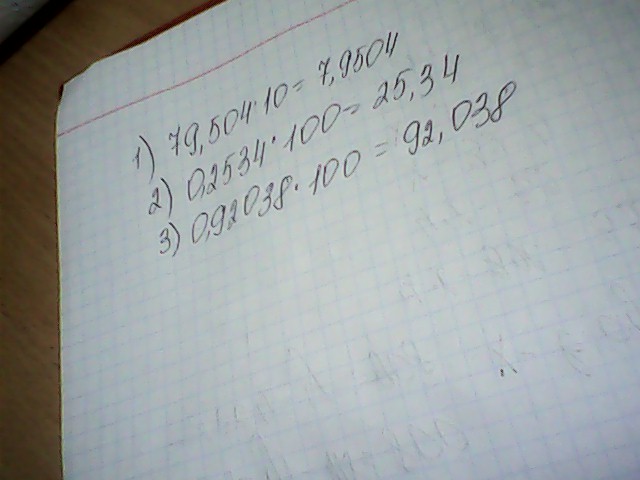 1) 79,504·10= 7,9504
2) 0,2534·100= 25,34
3) 0,92038·100= 92,038